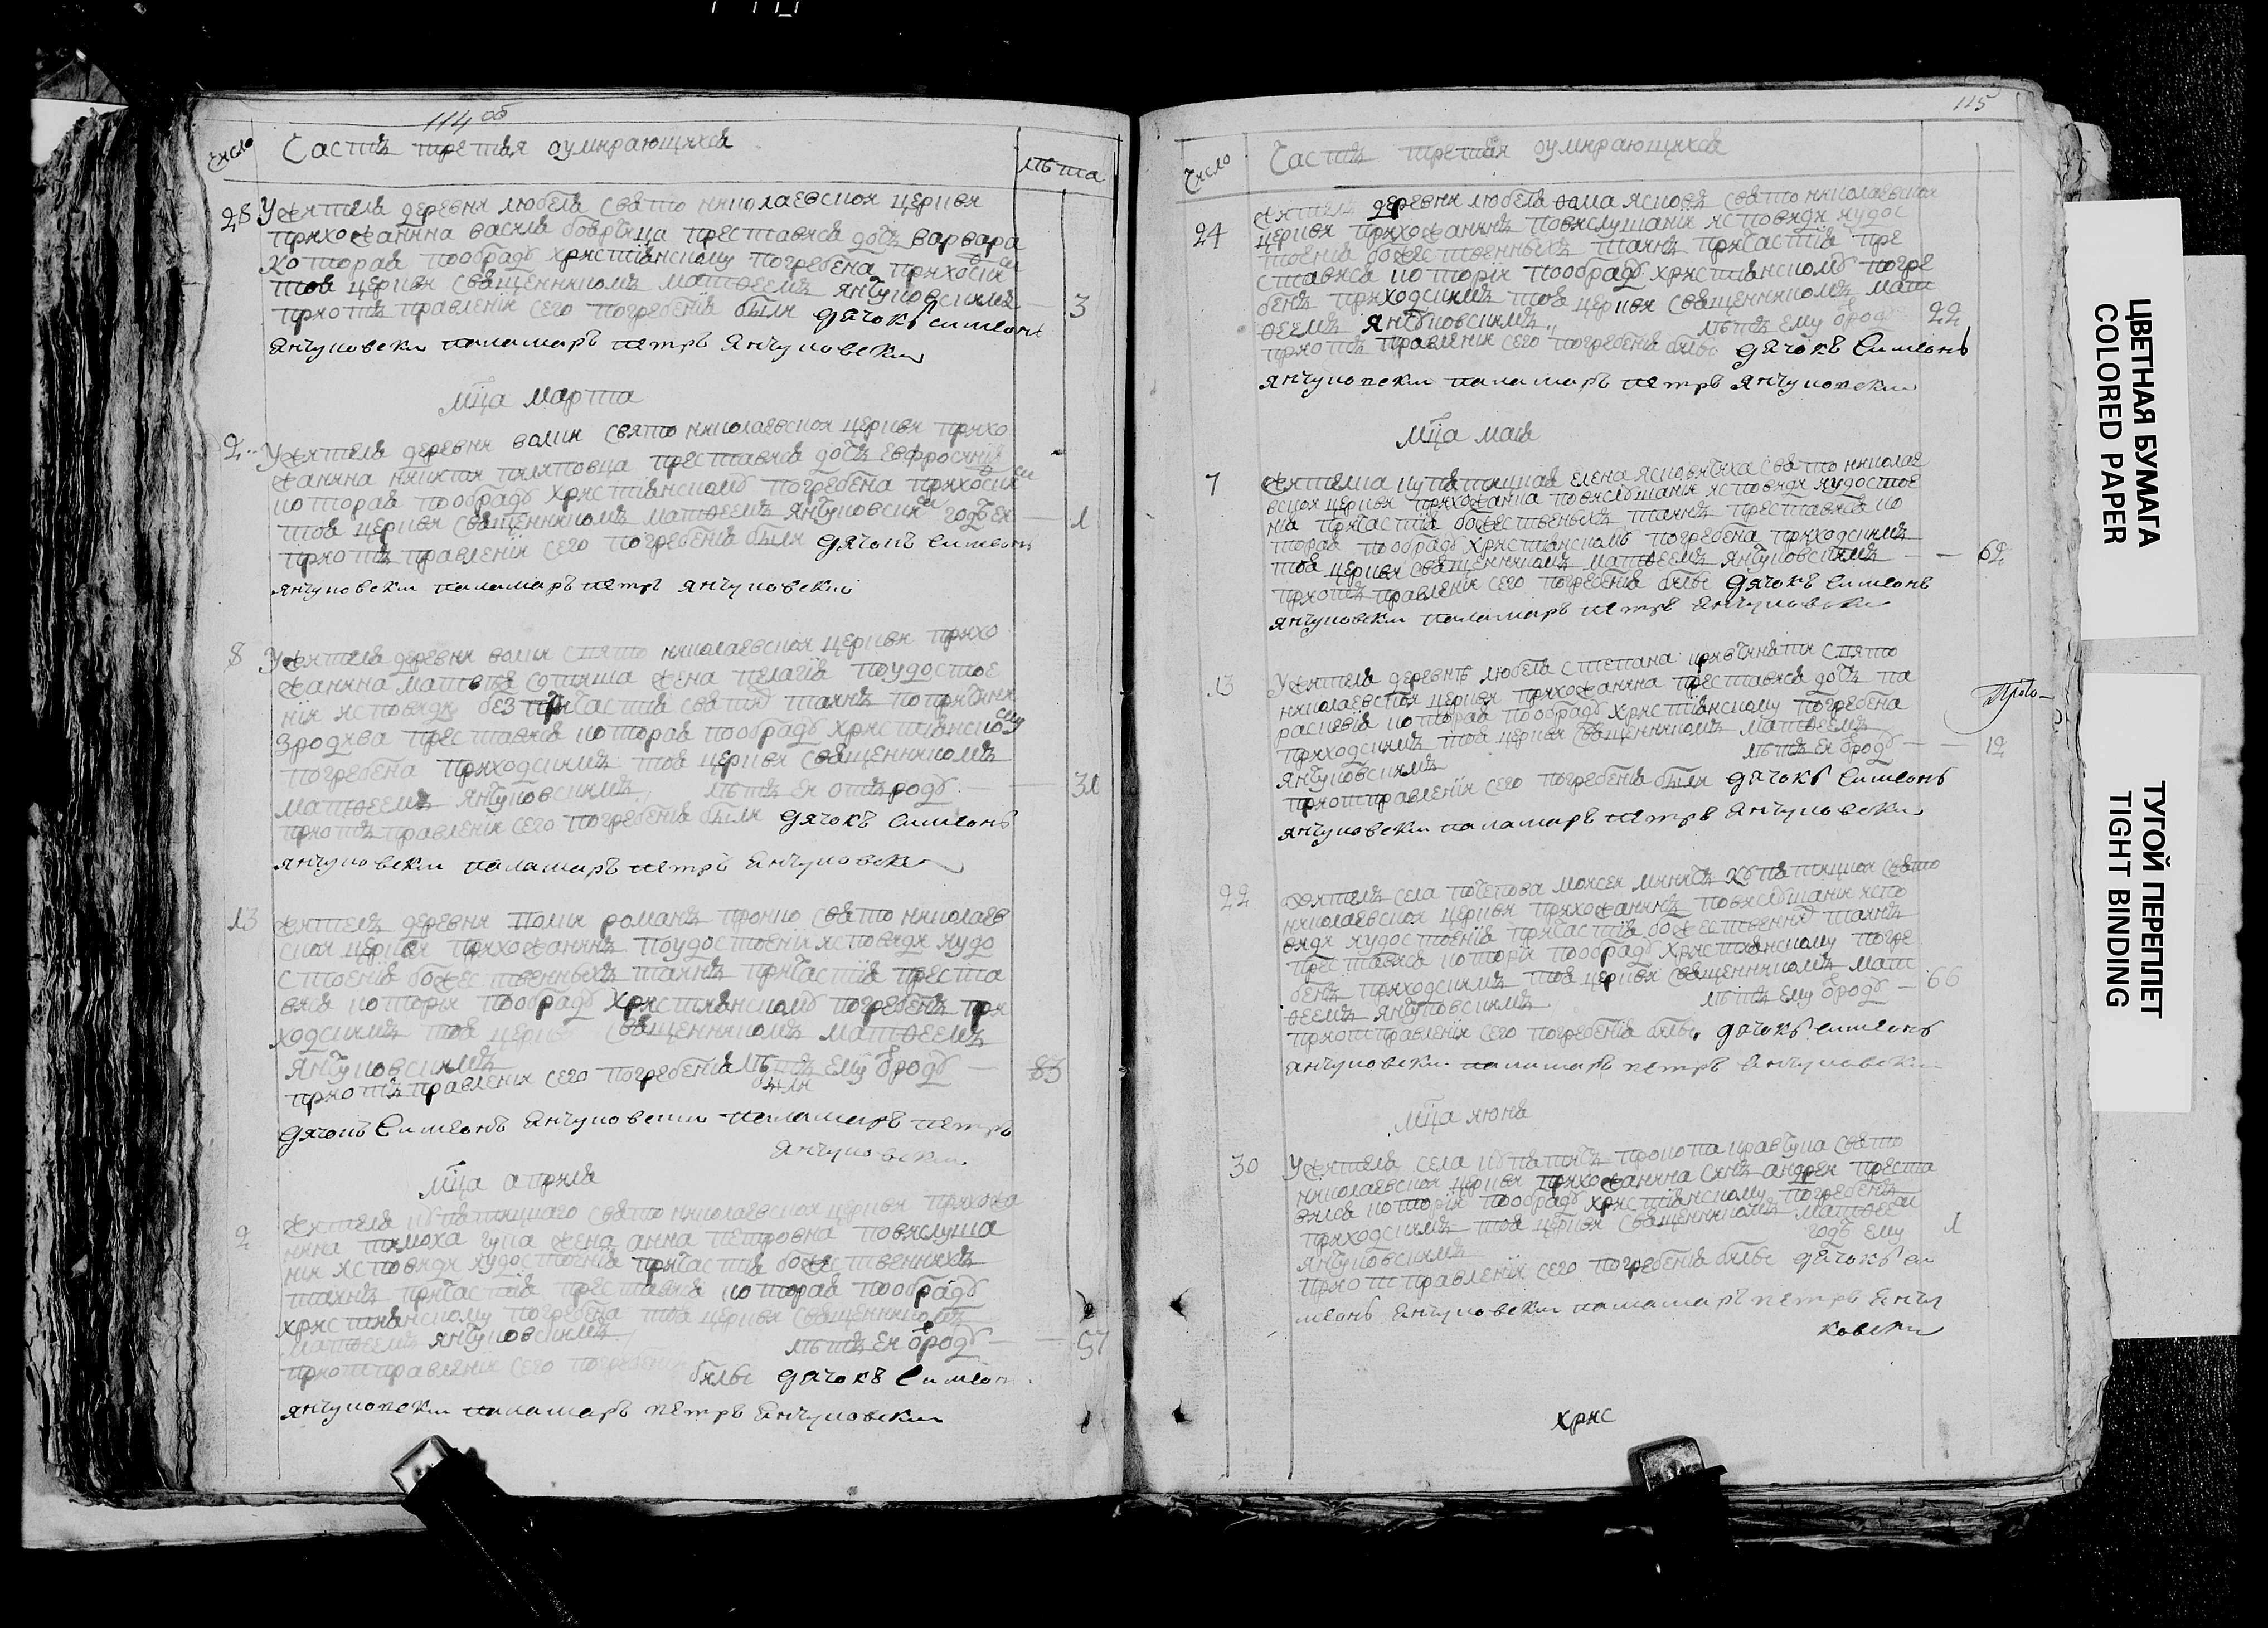 114 об
Число Часть третяя оумирающихся лѣта
28 У жителя деревни любеля свято николаевской церкви
прихожанина василя бобрица преставися дочь варвара
которая пообряду християнскому погребена приходским
тоя церкви священником матѳеем янчуковским — 3
при отправлении сего погребения были дячокъ симеонъ
Янчуковски паламаръ петръ Янчуковски
мца марта
2 У жителя деревни волки свято николаевской церкви прихо
жанина никиты преставися дочь евфросиния
которая пообряду християнскому погребена приходским
тоя церкви священником матѳеем янчуковским годъ ей — 1
при отправлении сего погребения были дячокъ симеонъ
янчуковски паламаръ петръ янчуковски
8 У жителя деревни волки свято николаевской церкви прихо
жанина матвея жена пелагия поудостое
нии исповеди без причастия святых таин
преставися которая пообряду християнскому
погребена приходским тоя церкви священником
матѳеем янчуковским лѣт ей от роду — 31
при отправлении сего погребения были дячокъ симеонъ
янчуковски паламаръ петръ Янчуковски
13 житель деревни волки роман пронко свято николаев
ской церкви прихожанин поудостоении исповеди и удо
стоения божественных таин причастия преста
вися которий пообряду християнскому погребен при
ходским тоя церкви священником матѳеем
янчуковским лѣт ему ѿроду — 83
при отправлении сего погребения были
дячокъ Симеонъ Янчуковски паламаръ петръ
Янчуковски
мца априля
2 жителя свято николаевской церкви прихожа
нина тимоха жена анна петровна повислуша
нии исповеди и удостоения причастия божественних
таин причастия преставися которая пообряду
християнскому погребена тоя церкви священником
матѳеем янчуковским лѣт ей ѿроду — 57
при отправлении сего погребения былы дячокъ Симеонъ
янчуковски паламаръ петръ Янчуковски
115
Число Часть третяя оумирающихся
24 житель деревни любеля ѳома свято николаевской
церкви прихожанин повислушании исповеди и удос
тоения божественных таин причастия пре
ставися которий пообряду християнскому погре
бен приходским тоя церкви священником мат
ѳеем янчуковским лѣт ему ѿроду 22
при отправлении сего погребения былы дячокъ Симеонъ
янчуковски паламаръ петръ Янчуковски
мца мая
7 елена свято николае
вской церкви прихожанка повислушании исповеди и удостое
ния причастия божественых таин преставися ко
торая пообряду християнскому погребена приходским
тоя церкви священником матѳеем янчуковским — 62
при отправлении сего погребения былы дячокъ Симеонъ
янчуковски паламаръ петръ Янчуковски
13 У жителя деревнѣ любеля степана свято
николаевской церкви прихожанина преставися дочь па
раскевия которая пообряду християнскому погребена
приходским тоя церкви священником матѳеем
янчуковским лѣт ей ѿроду — 12
при отправлении сего погребения были дячокъ Симеонъ
янчуковски паламаръ петръ Янчуковски
22 житель села моисей свято
николаевской церкви прихожанин повислушании испо
веди и удостоения причастия божественних таин
преставися которий пообряду християнскому погре
бен приходским тоя церкви священником мат
ѳеем янчуковским лѣт ему ѿроду — 66
при отправлении сего погребения былы дячокъ симеонъ
янчуковски паламаръ петръ Янчуковски
мца июня
30 У жителя села прокопа кравчука свято
николаевской церкви прихожанина син андрей преста
вился которий пообряду християнскому погребен
приходским тоя церкви священником матѳеем
янчуковским годъ ему 1
при отправлении сего погребения былы дячокъ си
меонъ Янчуковски паламаръ петръ Янчу
ковски
хрис
ЦВЕТНАЯ БУМАГА
COLORED PAPER
ТУГОЙ ПЕРЕПЛЕТ
TIGHT BINDING